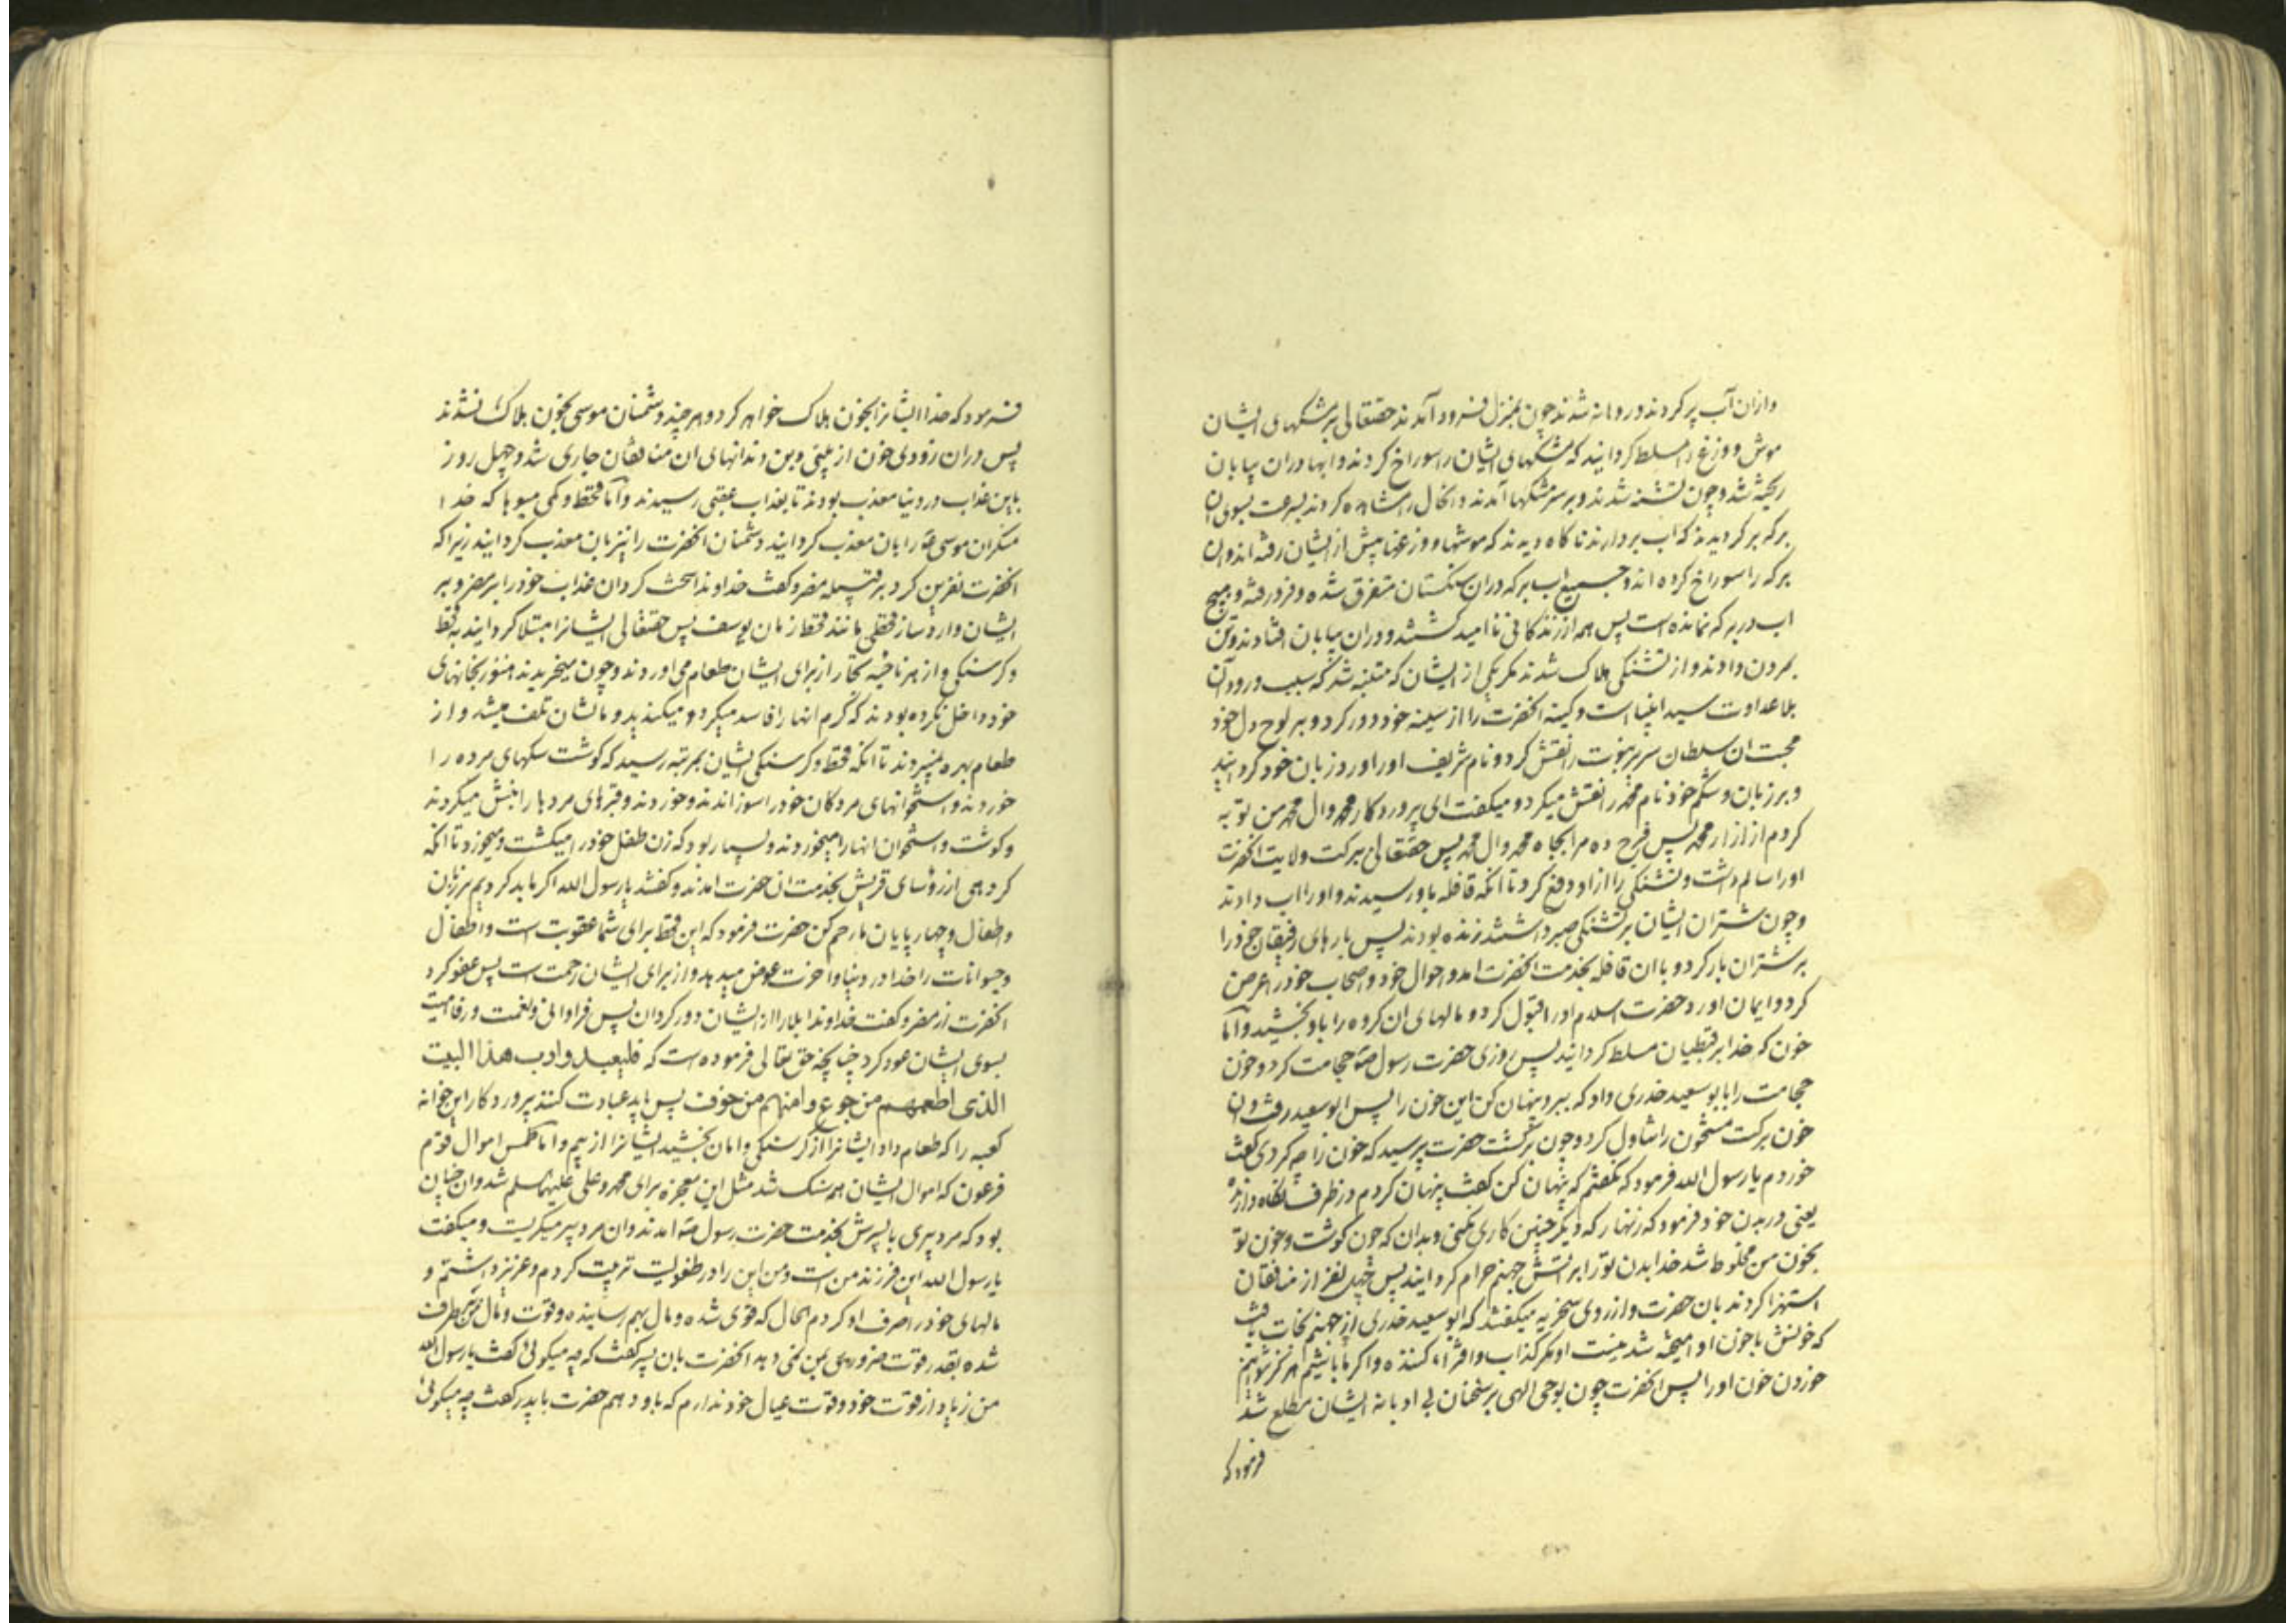 وازان آب پر کردند و روانه شدند چون بمنزل فرود آمدند حقتعالی بر مشکهای ایشان
موش و وزغ را مسلط کردانید که مشکهای ایشان را سوراخ کردند و ابها دران بیابان
ریخته شد و چون تشنه شدند و بر سر مشکها آمدند و انحال را مشاهده کردند بسرعت بسوی ان
برکه بر کردیدند که اب بردارند ناکاه دیدند که موشها و وزغها پیش از ایشان رفته اند و ان
برکه را سوراخ کرده اند و جمیع اب برکه دران سنکستان متفرق شده و فرو رفته و هیچ
اب در برکه نمانده است پس همه از زندکانی ناامید کشتند و دران بیابان افتادند و تن
بمردن دادند و از تشنکی هلاک شدند مکر یکی از ایشان که متنبه شد که سبب ورود آن
بلا عداوت سید انبیا است و کینه انحضرت را از سینه خود دور کرد و بر لوح دل خود
محبت ان سلطان سریر نبوت را نقش کرد و نام شریف او را ورد زبان خود کردانید
و بر زبان و شکم خود نام محمد را نقش میکرد و میکفت ای پروردکار محمد و ال محمد من توبه
کردم از ازار محمد پس فرج ده مرا بجاه محمد و ال محمد پس حقتعالی ببرکت ولایت انحضرت
او را سالم داشت و تشنکی را از او دفع کرد تا انکه قافله باو رسیدند و او را اب دادند
و چون شتران ایشان بر تشنکی صبر داشتند زنده بودند پس بارهای رفیقان خود را
بر شتران بار کرد و با ان قافله بخدمت انحضرت امد و احوال خود و اصحاب خود را عرض
کرد و ایمان اورد حضرت اسلام او را قبول کرد و مالهای ان کروه را باو بخشید و اما
خون که خدا بر قبطیان مسلط کردانید پس روزی حضرت رسول ص حجامت کرد و خون
حجامت را بابو سعید خدری داد که ببر و پنهان کن این خون را پس ابو سعید رفت و ان
خون برکت مشحون را تناول کرد و چون برکشت حضرت پرسید که خون را چه کردی کفت
خوردم یا رسول الله فرمود که نکفتم که پنهان کن کفت پنهان کردم در ظرف نکاه دارنده
یعنی در بدن خود فرمود که زنهار که دیکر چنین کاری نکنی و بدان که چون کوشت و خون تو
بخون من مخلوط شد خدا بدن تو را بر اتش جهنم حرام کردانید پس چهل نفر از منافقان
استهزا کردند بان حضرت و از روی سخریه میکفتند که ابو سعید خدری از جهنم نجات یافت
که خونش با خون او امیخته شد نیست او مکر کذاب و افترا کننده و اکر ما باشیم هرکز نخواهیم
خوردن خون او را پس انحضرت چون بوحی الهی بر سخنان بی ادبانه ایشان مطلع شد
فرمود که
فرمود که خدا ایشانرا بخون هلاک خواهد کرد و هر چند دشمنان موسی بخون هلاک نشدند
پس دران زودی خون از بینی و بن دندانهای ان منافقان جاری شد و چهل روز
باین عذاب در دنیا معذب بودند تا بعذاب عقبی رسیدند و اما قحط و کمی میوها که خدا
منکران موسی ع را بان معذب کردانید دشمنان انحضرت را نیز بان معذب کردانید زیرا که
انحضرت نفرین کرد بر قبیله مضر و کفت خداوندا سخت کردان عذاب خود را بر مضر و بر
ایشان وارد ساز قحطی مانند قحط زمان یوسف پس حقتعالی ایشانرا مبتلا کردانید به قحط
و کرسنکی و از هر ناحیه تجار از برای ایشان طعام می اوردند و چون میخریدند هنوز بخانهای
خود داخل نکرده بودند که کرم انها را فاسد میکرد و میکندید و مالشان تلف میشد و از
طعام بهره نمیبردند تا انکه قحط و کرسنکی ایشان بمرتبه رسید که کوشت سکهای مرده را
خوردند و استخوانهای مردکان خود را سوزاندند و خوردند و قبرهای مردها را نبش میکردند
و کوشت و استخوان انها را میخوردند و بسیار بود که زن طفل خود را میکشت و میخورد تا انکه
کروهی از رؤسای قریش بخدمت ان حضرت امدند و کفتند یا رسول الله اکر ما بد کردیم بر زنان
و اطفال و چهار پایان ما رحم کن حضرت فرمود که این قحط برای شما عقوبت است و اطفال
و حیوانات را خدا در دنیا و اخرت عوض میدهد و از برای ایشان رحمت است پس عفو کرد
انحضرت از مضر و کفت خداوندا بلا را از ایشان دور کردان پس فراوانی و نعمت و رفاهیت
بسوی ایشان عود کرد چنانچه حق تعالی فرموده است که فلیعبدوا رب هذا البیت
الذی اطعمهم من جوع و امنهم من خوف پس باید عبادت کنند پروردکار این خوانه
کعبه را که طعام داد ایشانرا از کرسنکی و امان بخشید ایشانرا از بیم و اما طمس اموال قوم
فرعون که اموال ایشان همه سنک شد مثل این معجزه برای محمد و علی علیهما السلم شد و ان چنان
بود که مرد پیری با پسرش بخدمت حضرت رسول ص امدند و ان مرد پیر میکریست و میکفت
یا رسول الله این فرزند من است و من این را در طفولیت تربیت کردم و عزیز داشتم و
مالهای خود را صرف او کردم الحال که قوی شده و مال بهم رسانیده و قوت و مال من برطرف
شده بقدر قوت ضروری بمن نمی دهد انحضرت بان پسر کفت که چه میکوئی کفت یا رسول الله
من زیاد از قوت خود و قوت عیال خود ندارم که باو دهم حضرت با پدر کفت چه میکوئی